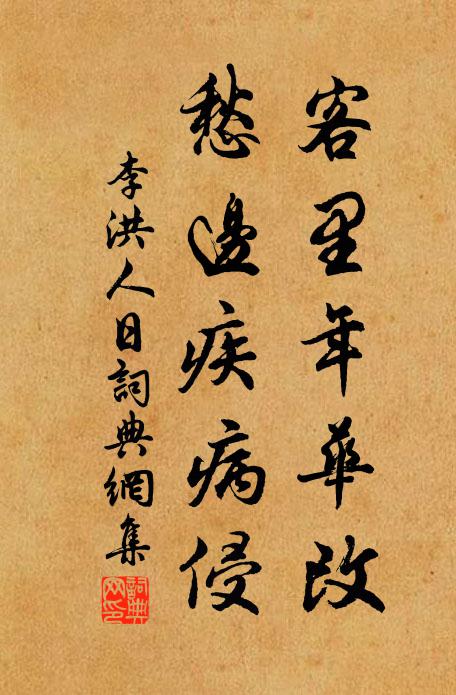 客里年華改
愁邊疾病侵
李洪人日詞典網集
詞典網印